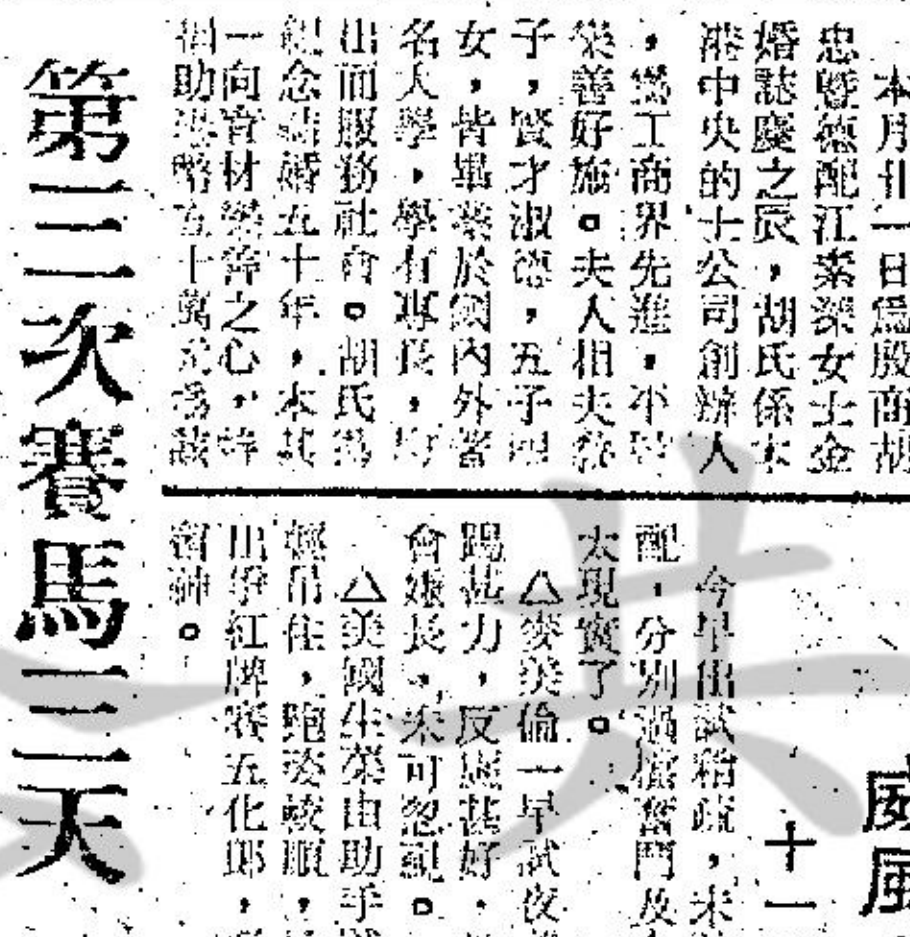 本月廿一日為殷商胡
忠暨德配江素梁女士金
婚誌慶之辰，胡氏係本
港中央的士公司創辦人
，為工商界先進，平
樂善好施。夫人相夫教
子，賢才淑德，五子四
女，皆畢業於國內外著
名大學，學有專長，均
出而服務社會。胡氏為
紀念結婚五十年，本其
一向育材樂善之心，特
捐助港幣五十萬元為該
威風
十一
今早出試稍疏，未
配，分別過檔奮鬥及
太現實了。
△麥美倫一早試夜
踢甚力，反應甚好，
會嫌長，未可忽視。
△美國生菜由助手
輕吊住，跑姿較順，
出爭紅牌賽五化郎，
留神。
第三次賽馬三天
共